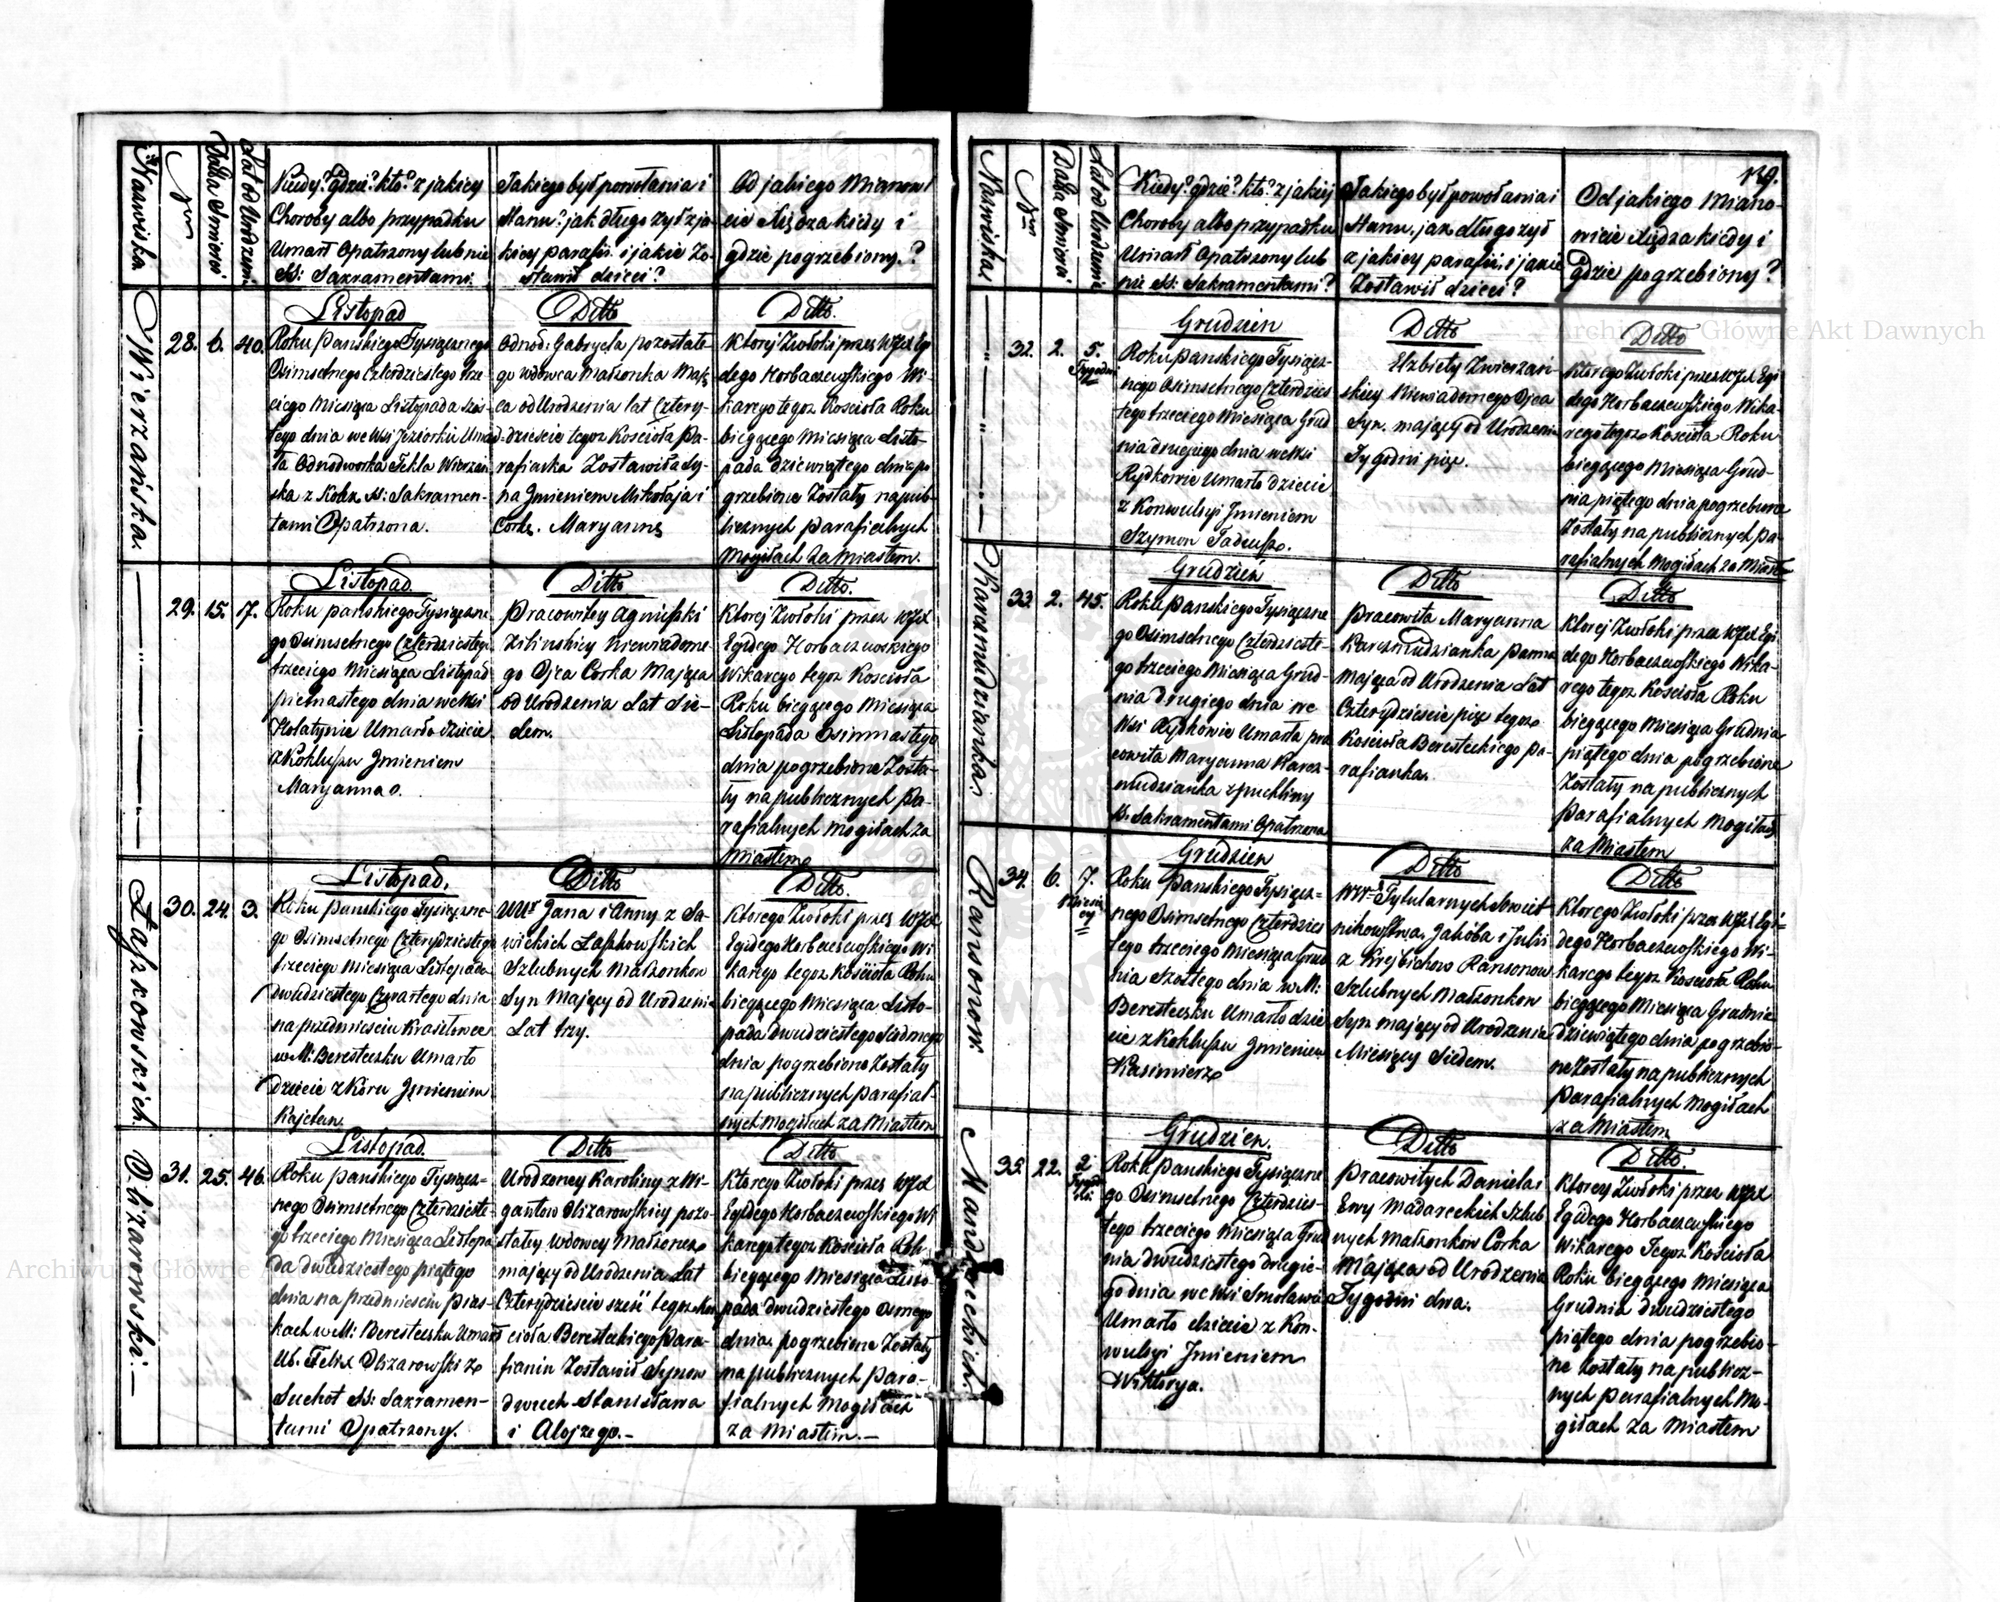 Nazwiska
Nrm
Datta Smierci
Lat od Urodzenia
Kiedy? gdzie? kto? z jakiey
Choroby albo przypadku
Umarł Opatrzony lub nie
SS: Sakramentami.
Jakiego był powołania i
Stanu? jak długo żył z ja-
kiey parafii i jakie Zo-
stawił dzieci?
Od jakiego Mianowi
cie Xiędza kiedy i
gdzie pogrzebiony.?
Wierzańska.
28.
6.
40.
Listopad
Roku Pańskiego Tysiącznego
Osimsetnego Czterdziestego trze-
ciego Miesiąca Listopada szós-
tego dnia we Wsi Jeziorku Umar-
ła Odnodworka Tekla Wierzań
ska z Kolek SS: Sakramen-
tami Opatrzona.
Ditto
Odnod: Gabryela pozostałe-
go wdowca Małżonka Mają
ca od Urodzenia lat Cztery-
dzieście tegoż Kościoła Pa-
rafianka Zostawiła Sy-
na Jmieniem Mikołaja i
Corkę. Maryannę
Ditto.
Ktorey Zwłoki przez WJX Egi
dego Horbaczewskiego Wi-
karego tegoż Kościoła Roku
bieżącego Miesiąca Listo-
pada dziewiątego dnia po
grzebione Zostały na pub-
licznych Parafialnych
Mogiłach Za Miastem.
29.
15.
7.
Listopad.
Roku Pańskiego Tysiączne
go Osimsetnego Czterdziestego
trzeciego Miesiąca Listopad
pietnastego dnia we Wsi
Hołatynie Umarło dziecie
z Kokluszu Jmieniem
Maryanna.
Ditto
Pracowitey Agnieszki
Zilinskiey Niewiadome-
go Ojca Corka Mająca
od Urodzenia Lat Sie-
dem.
Ditto.
Ktorej Zwłoki przez WJX
Egidego Horbaczewskiego
Wikarego tegoż Kościoła
Roku bieżącego Miesiąca
Listopada Osimnastego
dnia pogrzebione Zosta-
ły na publicznych Pa-
rafialnych Mogiłach za
Miastem
Łaszkowskich.
30.
24.
3.
Listopad.
Roku Pańskiego Tysiączne-
go Osimsetnego Czterydziestego
trzeciego Miesiąca Listopada
dwudziestego Czwartego dnia
na przedmieściu
w M: Beresteczku Umarło
dziecie z Koru Jmieniem
Kajetan.
Ditto
WWr Jana i Anny z Sa-
wickich Łaszkowskich
Szlubnych Małżonkow
Syn Mający od Urodzenia
Lat trzy.
Ditto.
Ktorego Zwłoki przez WJX
Egidego Horbaczewskiego Wi
karego tegoż Kościoła Roku
bieżącego Miesiąca Listo-
pada dwudziestego siódmego
dnia pogrzebione Zostały
na publicznych parafial-
nych Mogiłach za Miastem
Olizarowski.
31.
25.
46.
Listopad.
Roku Pańskiego Tysiącz-
nego Osimsetnego Czterdzieste
go trzeciego Miesiąca Listopa
da dwudziestego piątego
dnia na przedmieściu Pias-
kach w M: Beresteczku Umarł
Ur. Felix Olizarowski z
Suchot SS: Sakramen-
tami Opatrzony.
Ditto
Urodzoney Karoliny z Wi-
gantow Olizarowskiey pozo-
stałey wdowcy Małżonek
mający od Urodzenia Lat
Czterydzieście sześć tegoż Koś
cioła Beresteckiego Para-
fianin Zostawił Synow
dwuch Stanisława
i Alojzego.
Ditto
Ktorego Zwłoki przez WJX
Egidego Horbaczewskiego Wi
karego tegoż Kościoła Roku
bieżącego Miesiąca Listo-
pada dwudziestego Osmego
dnia pogrzebione Zostały
na publicznych Para-
fialnych Mogiłach
za Miastem.
139.
Nazwiska
Nrm
Datta Smierci
Lat od Urodzenia
Kiedy? gdzie? kto? z jakiey
Choroby albo przypadku
Umarł Opatrzony lub
nie SS: Sakramentami?
Jakiego był powołania i
Stanu, jak długo żył
z jakiey parafii i jakie
Zostawił dzieci?
Od jakiego Miano-
wicie Xiędza kiedy i
gdzie pogrzebiony?
32.
2.
5.
Tygodni
Grudzień
Roku Pańskiego Tysiącz-
nego Osimsetnego Czterdzies
tego trzeciego Miesiąca Grud
nia drugiego dnia we Wsi
Rydkowie Umarło dziecie
z Konwulsyi Jmieniem
Szymon Tadeusz.
Ditto
Elżbiety Zwierzań-
skiey Niewiadomego Ojca
Syn. mający od Urodzenia
Tygodni pięć.
Ditto
Ktorego Zwłoki przez WJX Egi
dego Horbaczewskiego Wika-
rego tegoż Kościoła Roku
bieżącego Miesiąca Grud-
nia piątego dnia pogrzebione
Zostały na publicznych Pa-
rafialnych Mogiłach za Miastem
Karczmudzianka
33.
2.
45.
Grudzień
Roku Pańskiego Tysiączne
go Osimsetnego Czterdzieste-
go trzeciego Miesiąca Grud-
nia drugiego dnia we
Wsi Rydkowie Umarła pra
cowita Maryanna Karcz-
mudzianka z puchliny
S. Sakramentami Opatrzona
Ditto
Pracowita Maryanna
Karczmudzianka panna
mająca od Urodzenia Lat
Czterydzieście pięć tegoż
Kościoła Beresteckiego Pa-
rafianka.
Ditto
Ktorej Zwłoki przez WJX Egi
dego Horbaczewskiego Wika-
rego tegoż Kościoła Roku
bieżącego Miesiąca Grudnia
piątego dnia pogrzebione
Zostały na publicznych
Parafialnych Mogiłach
za Miastem
Ransonow.
34.
6.
7.
Miesię
cy
Grudzień
Roku Pańskiego Tysiącz-
nego Osimsetnego Czterdzies
tego trzeciego Miesiąca Grud
nia szóstego dnia w M:
Beresteczku Umarło dzie
cie z Kokluszu Jmieniem
Kazimierz
Ditto
WWr Tytularnych Sowiet
nikowstwa Jakóba i Julii
z Krejbichow Ransonow
Szlubnych Małżonkow
Syn mający od Urodzenia
Miesięcy Siedem.
Ditto
Ktorego Zwłoki przez WJX Egi-
dego Horbaczewskiego Wi-
karego tegoż Kościoła Roku
bieżącego Miesiąca Grudnia
dziewiątego dnia pogrzebio-
ne Zostały na publicznych
Parafialnych Mogiłach
za Miastem
35.
22.
2
Tygod
ni
Grudzień.
Roku Pańskiego Tysiączne
go Osimsetnego Czterdzies-
tego trzeciego Miesiąca Grud
nia dwudziestego drugie-
go dnia we Wsi Smolawie
Umarło dziecie z Kon-
wulsyi Jmieniem
Wiktorya.
Ditto
Pracowitych Daniela i
Ewy Szlub
nych Małżonkow Corka
Mająca od Urodzenia
Tygodni dwa.
Ditto.
Ktorey Zwłoki przez WJX
Egidego Horbaczewskiego
Wikarego Tegoż Kościoła
Roku bieżącego Miesiąca
Grudnia dwudziestego
piątego dnia pogrzebio-
ne Zostały na publicz-
nych Parafialnych Mo-
giłach Za Miastem
Archiwum Główne Akt Dawnych
Archiwum Główne A